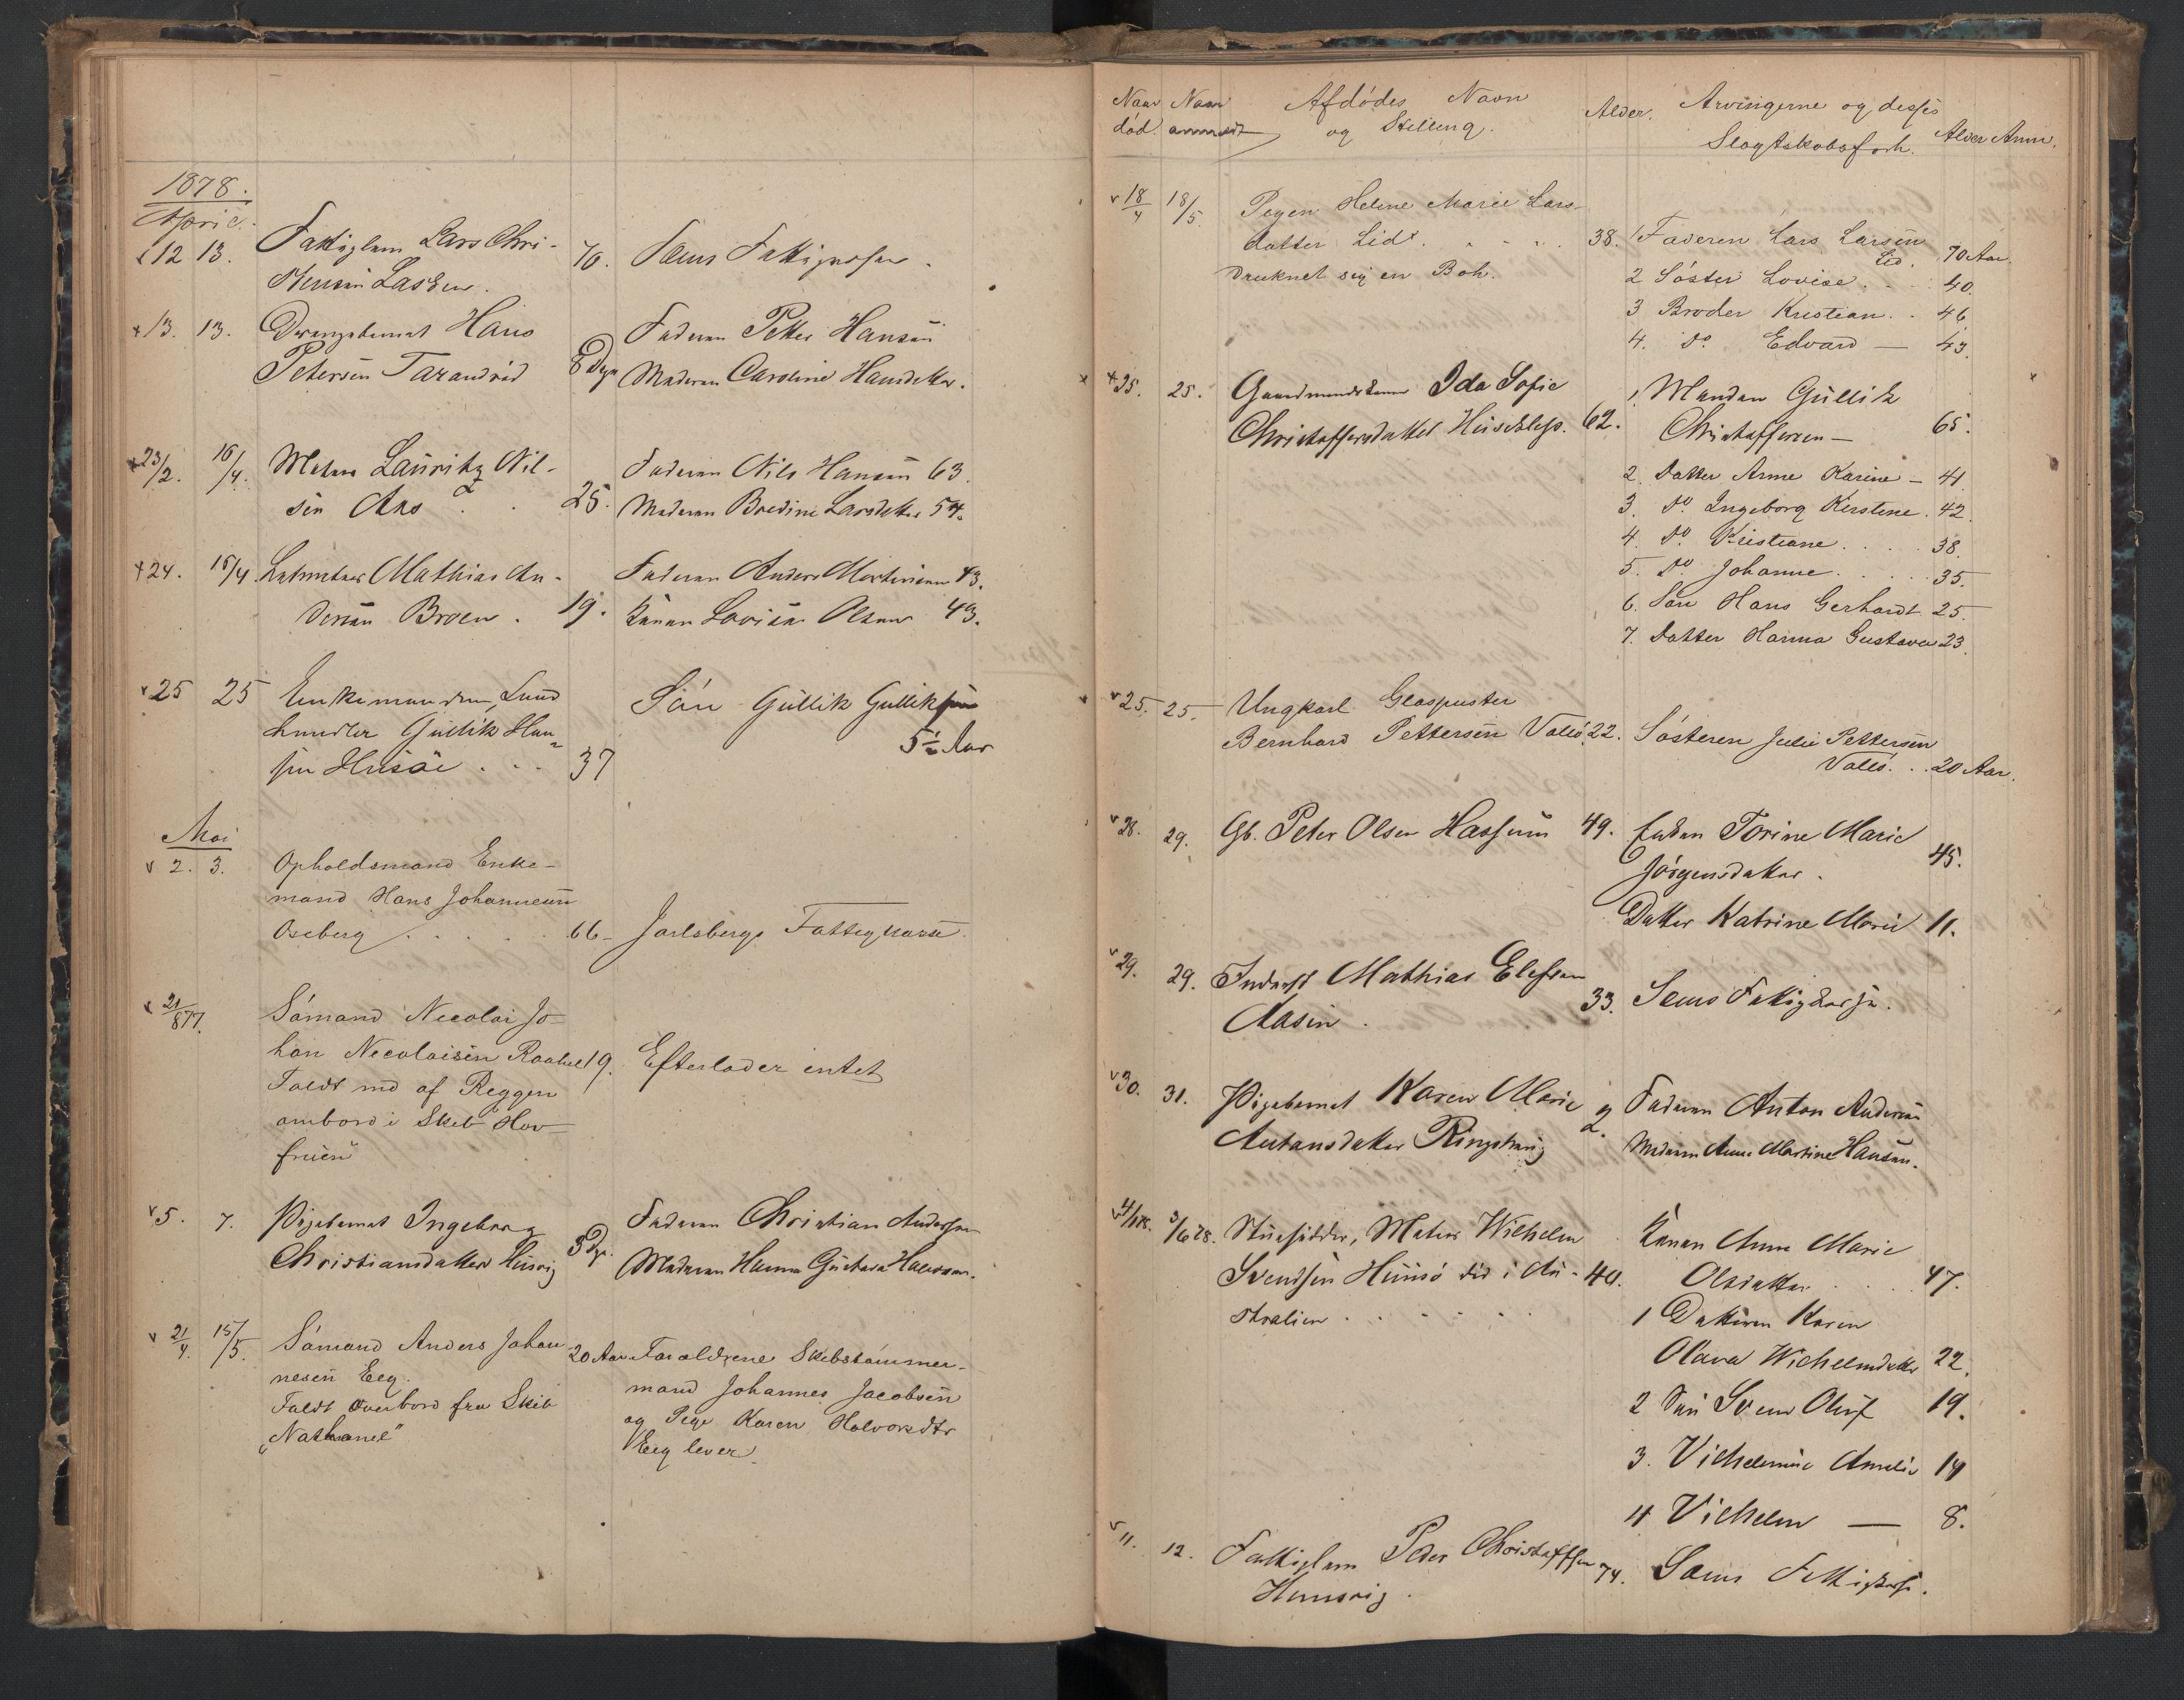 1878.
April.
12 13. Fattiglem Lars Chri-
stensen Lasken. 76. Sems Fattigkasse.
13. 13. Drengebarnet Hans
Petersen Tarandrød 8 Dage
Faderen Petter Hansen
Moderen Caroline Hansdatter.
23/2. 16/4. Matros Lauritz Nil-
sen Aas 25.
Faderen Nils Hansen 63.
Moderen Bredine Larsdatter 54.
24. 15/4. Mathias An-
dersen Broen. 19.
Faderen Anders Mortensen 43.
Konen Lovise Olsen 43.
25 25 Enkemanden, Land
handler Gullik Han-
sen Husøe . . . 37
Søn Gullik Gulliksen
5½ Aar
Mai
2. 3. Opholdsmand Enke-
mand Hans Johannesen
Oseberg . . . . . 66 - Jarlsbergs Fattigkasse.
21/877. Sømand Necolai Jo-
han Necolaisen Raastad 19. Efterlader intet
Faldt ned af Reggen
ombord i Skib Hav-
fruen"
5. 7. Pigebarnet Ingeborg
Christiansdatter Husvig 3 Dg.
Faderen Christian Andersen
Moderen Hanna Gustava Hansen.
21/4. 15/5. Sømand Anders Johan
nesen Eeg. 20 Aar
Faldt overbord fra Skib
„Nathanel"
Foraldrene Skibstømmer-
mand Johannes Jacobsen
og Pige Karen Halvorsdtr
Eeg lever.
Naar død. Naar anmeldt Afdødes Navn og Stilling. Alder. Arvingerne og disses Slagtskabsforh. Alder Anm.
18/4 18/5. Pegen Helene Marie Lars-
datter Lid. . . . . 38.
Druknet sig en Bæk.
1 Faderen Lars Larsen
Lid. 70 Aar.
2 Søster Lovise . . . 40.
3 Broder Kristian. . 46
4. do Edvard — 43.
25. 25. Gaardmandskone Ida Sofie
Christoffersdatter 62.
1 Manden Gullik
Christoffersen — 65.
2. Datter Anne Karine — 41
3. do Ingeborg Kirstene. 42
4. do Kristiane . . . . 38.
5. do Johanne . . . . . 35.
6. Søn Hans Gerhardt 25
7. Datter Hanna Gustava 23.
25. 25. Ungkarl Glaspuster
Bernhard Pettersen Vallø 22.
Søsteren Julie Pettersen
Vallø. . . 20 Aar.
28. 29. Gb. Peter Olsen Hassum 49.
Enken Torine Marie
Jørgensdatter. 45.
Datter Katrine Marie 11.
29. 29. Inderst Mathias Elefsen
Aasen. 33. Sems Fattigkasse.
30. 31. Pigebarnet Karen Marie
Antonsdatter Ringshaug 2.
Faderen Anton Andersen
Moderen Anne Martine Hansen.
3/6 78. Matros Wilhelm
Svendsen Husø død i Au- 40.
stralien . . . . . .
Konen Anne Marie
Olsdatter . . . . 47.
1 Datteren Karen
Olava Wilhelmdatter 22.
2 Søn Svend Oluf 19.
3. Vilhelmine Amalie 14
4 Vilhelm — 8.
11. 12. Fattiglem Peder Christoffersen 74.
Husvig.
Sems Fattigkasse.